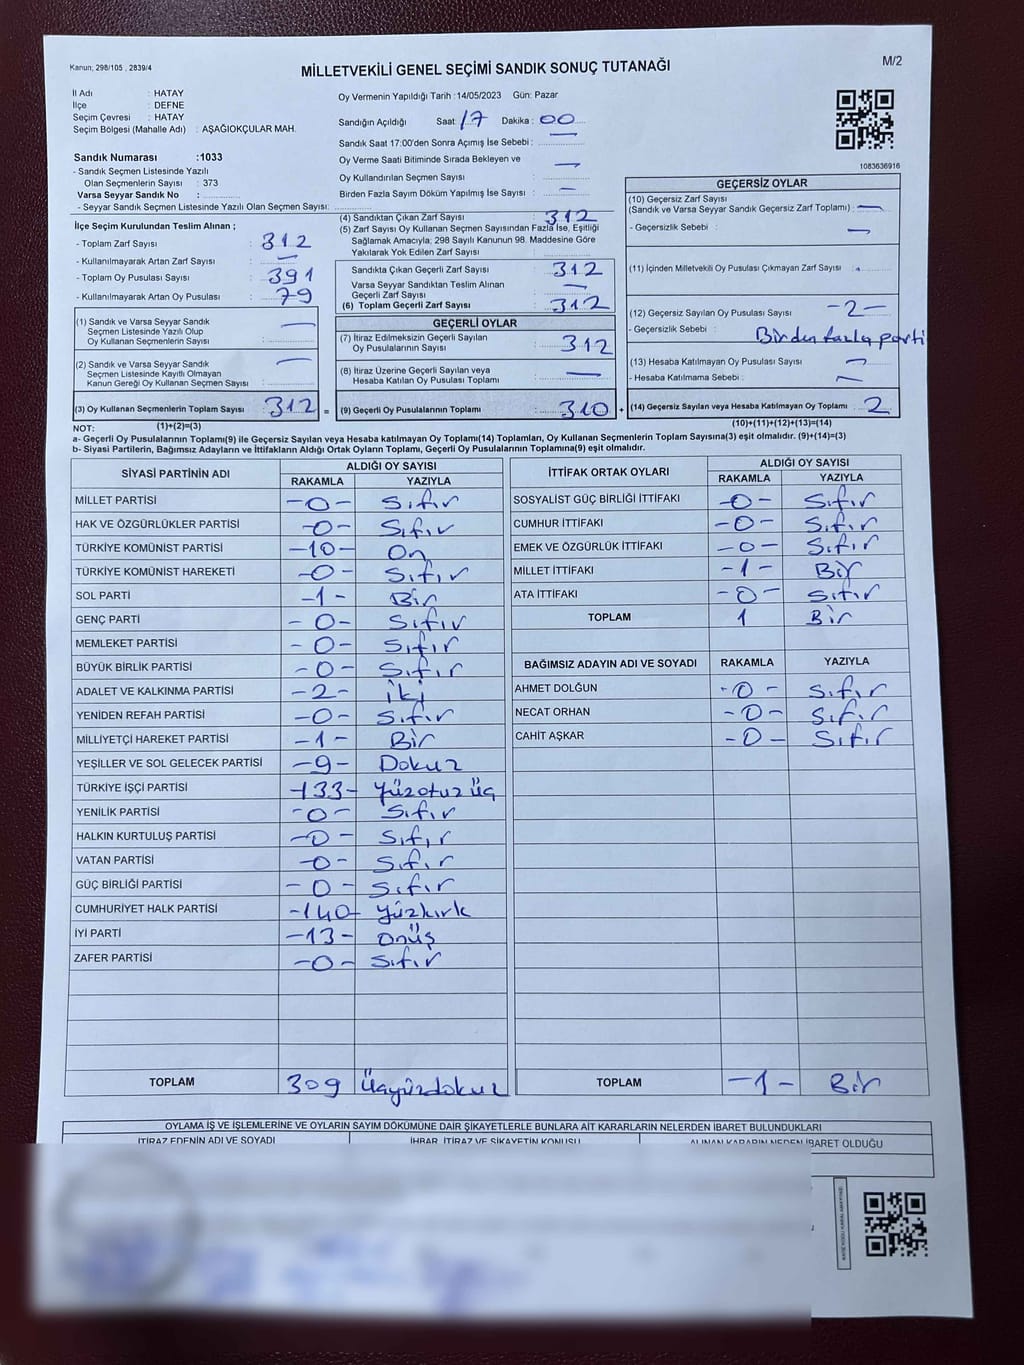 Kanun; 298/105 , 2839/4
M/2
MİLLETVEKİLİ GENEL SEÇİMİ SANDIK SONUÇ TUTANAĞI
İl Adı : HATAY
İlçe : DEFNE
Seçim Çevresi : HATAY
Seçim Bölgesi (Mahalle Adı) : AŞAĞIOKÇULAR MAH.
Sandık Numarası :1033
- Sandık Seçmen Listesinde Yazılı
Olan Seçmenlerin Sayısı : 373
Varsa Seyyar Sandık No :
- Seyyar Sandık Seçmen Listesinde Yazılı Olan Seçmen Sayısı:
Oy Vermenin Yapıldığı Tarih :14/05/2023 Gün: Pazar
Sandığın Açıldığı Saat: 17 Dakika : 00
Sandık Saat 17:00'den Sonra Açımış İse Sebebi : —
Oy Verme Saati Bitiminde Sırada Bekleyen ve
Oy Kullandırılan Seçmen Sayısı : —
Birden Fazla Sayım Döküm Yapılmış İse Sayısı : —
1083636916
İlçe Seçim Kurulundan Teslim Alınan ;
- Toplam Zarf Sayısı : 312
- Kullanılmayarak Artan Zarf Sayısı : —
- Toplam Oy Pusulası Sayısı : 391
- Kullanılmayarak Artan Oy Pusulası : 79
(1) Sandık ve Varsa Seyyar Sandık
Seçmen Listesinde Yazılı Olup
Oy Kullanan Seçmenlerin Sayısı : —
(2) Sandık ve Varsa Seyyar Sandık
Seçmen Listesinde Kayıtlı Olmayan
Kanun Gereği Oy Kullanan Seçmen Sayısı : —
(3) Oy Kullanan Seçmenlerin Toplam Sayısı : 312
(1)+(2)=(3)
(4) Sandıktan Çıkan Zarf Sayısı : 312
(5) Zarf Sayısı Oy Kullanan Seçmen Sayısından Fazla İse, Eşitliği
Sağlamak Amacıyla; 298 Sayılı Kanunun 98. Maddesine Göre
Yakılarak Yok Edilen Zarf Sayısı :
Sandıkta Çıkan Geçerli Zarf Sayısı : 312
Varsa Seyyar Sandıktan Teslim Alınan
Geçerli Zarf Sayısı : —
(6) Toplam Geçerli Zarf Sayısı : 312
GEÇERLİ OYLAR
(7) İtiraz Edilmeksizin Geçerli Sayılan
Oy Pusulalarının Sayısı : 312
(8) İtiraz Üzerine Geçerli Sayılan veya
Hesaba Katılan Oy Pusulası Toplamı : —
= (9) Geçerli Oy Pusulalarının Toplamı : 310 +
GEÇERSİZ OYLAR
(10) Geçersiz Zarf Sayısı
(Sandık ve Varsa Seyyar Sandık Geçersiz Zarf Toplamı) : —
- Geçersizlik Sebebi : —
(11) İçinden Milletvekili Oy Pusulası Çıkmayan Zarf Sayısı :
(12) Geçersiz Sayılan Oy Pusulası Sayısı : -2-
- Geçersizlik Sebebi : Birden fazla parti
(13) Hesaba Katılmayan Oy Pusulası Sayısı : —
- Hesaba Katılmama Sebebi : —
(14) Geçersiz Sayılan veya Hesaba Katılmayan Oy Toplamı : 2
(10)+(11)+(12)+(13)=(14)
NOT:
a- Geçerli Oy Pusulalarının Toplamı(9) ile Geçersiz Sayılan veya Hesaba katılmayan Oy Toplamı(14) Toplamları, Oy Kullanan Seçmenlerin Toplam Sayısına(3) eşit olmalıdır. (9)+(14)=(3)
b- Siyasi Partilerin, Bağımsız Adayların ve İttifakların Aldığı Ortak Oyların Toplamı, Geçerli Oy Pusulalarının Toplamına(9) eşit olmalıdır.
SİYASİ PARTİNİN ADI ALDIĞI OY SAYISI
RAKAMLA YAZIYLA
MİLLET PARTİSİ -0- Sıfır
HAK VE ÖZGÜRLÜKLER PARTİSİ -0- Sıfır
TÜRKİYE KOMÜNİST PARTİSİ -10- On
TÜRKİYE KOMÜNİST HAREKETİ -0- Sıfır
SOL PARTİ -1- Bir
GENÇ PARTİ -0- Sıfır
MEMLEKET PARTİSİ -0- Sıfır
BÜYÜK BİRLİK PARTİSİ -0- Sıfır
ADALET VE KALKINMA PARTİSİ -2- iki
YENİDEN REFAH PARTİSİ -0- Sıfır
MİLLİYETÇİ HAREKET PARTİSİ -1- Bir
YEŞİLLER VE SOL GELECEK PARTİSİ -9- Dokuz
TÜRKİYE İŞÇİ PARTİSİ -133- Yüzotuz üç
YENİLİK PARTİSİ -0- Sıfır
HALKIN KURTULUŞ PARTİSİ -0- Sıfır
VATAN PARTİSİ -0- Sıfır
GÜÇ BİRLİĞİ PARTİSİ -0- Sıfır
CUMHURİYET HALK PARTİSİ -140- Yüzkırk
İYİ PARTİ -13- Onüş
ZAFER PARTİSİ -0- Sıfır
TOPLAM 309 Üçyüzdokuz
İTTİFAK ORTAK OYLARI ALDIĞI OY SAYISI
RAKAMLA YAZIYLA
SOSYALİST GÜÇ BİRLİĞİ İTTİFAKI -0- Sıfır
CUMHUR İTTİFAKI -0- Sıfır
EMEK VE ÖZGÜRLÜK İTTİFAKI -0- Sıfır
MİLLET İTTİFAKI -1- Bir
ATA İTTİFAKI -0- Sıfır
TOPLAM 1 Bir
BAĞIMSIZ ADAYIN ADI VE SOYADI RAKAMLA YAZIYLA
AHMET DOLĞUN -0- Sıfır
NECAT ORHAN -0- Sıfır
CAHİT AŞKAR -0- Sıfır
TOPLAM -1- Bir
OYLAMA İŞ VE İŞLEMLERİNE VE OYLARIN SAYIM DÖKÜMÜNE DAİR ŞİKAYETLERLE BUNLARA AİT KARARLARIN NELERDEN İBARET BULUNDUKLARI
İTİRAZ EDENİN ADI VE SOYADI İHBAR, İTİRAZ VE ŞİKAYETİN KONUSU ALINAN KARARIN NEDEN İBARET OLDUĞU